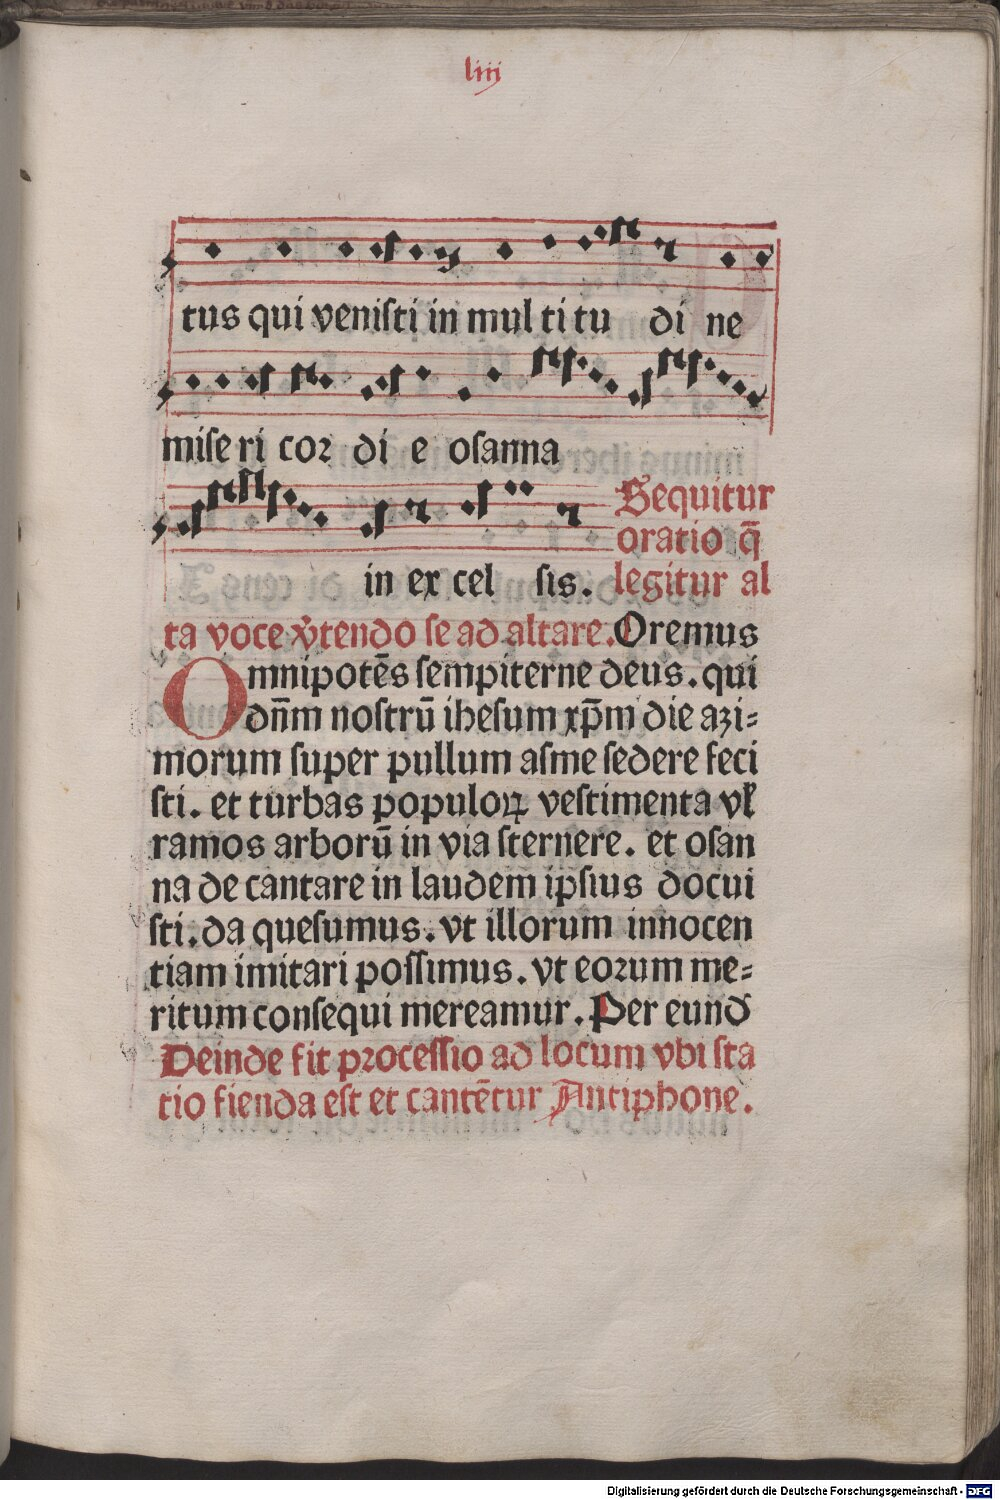 liii
tus qui veniſti in mul ti tu di ne
miſe ri coꝛ di e oſanna
Sequitur
oratio q̄
in ex cel ſis. legitur al
ta voce v̓tendo ſe ad altare. Oremus
Omnipotēs ſempiterne deus. qui
dn̄m noſtrū iheſum xp̄m die azi⸗
morum ſuper pullum aſine ſedere feci
ſti. et turbas populoꝝ veſtimenta vł
ramos arborū in via ſternere. et oſan
na de cantare in laudem ip̄ſius docui
ſti. da queſumus. vt illorum innocen
tiam imitari poſſimus. vt eoꝛum me⸗
ritum conſequi mereamur. Per eund
Deinde fit proceſſio ad locum vbi ſta
tio fienda eſt et cantētur Antiphone.
Digitalisierung gefördert durch die Deutsche Forschungsgemeinschaft - DFG